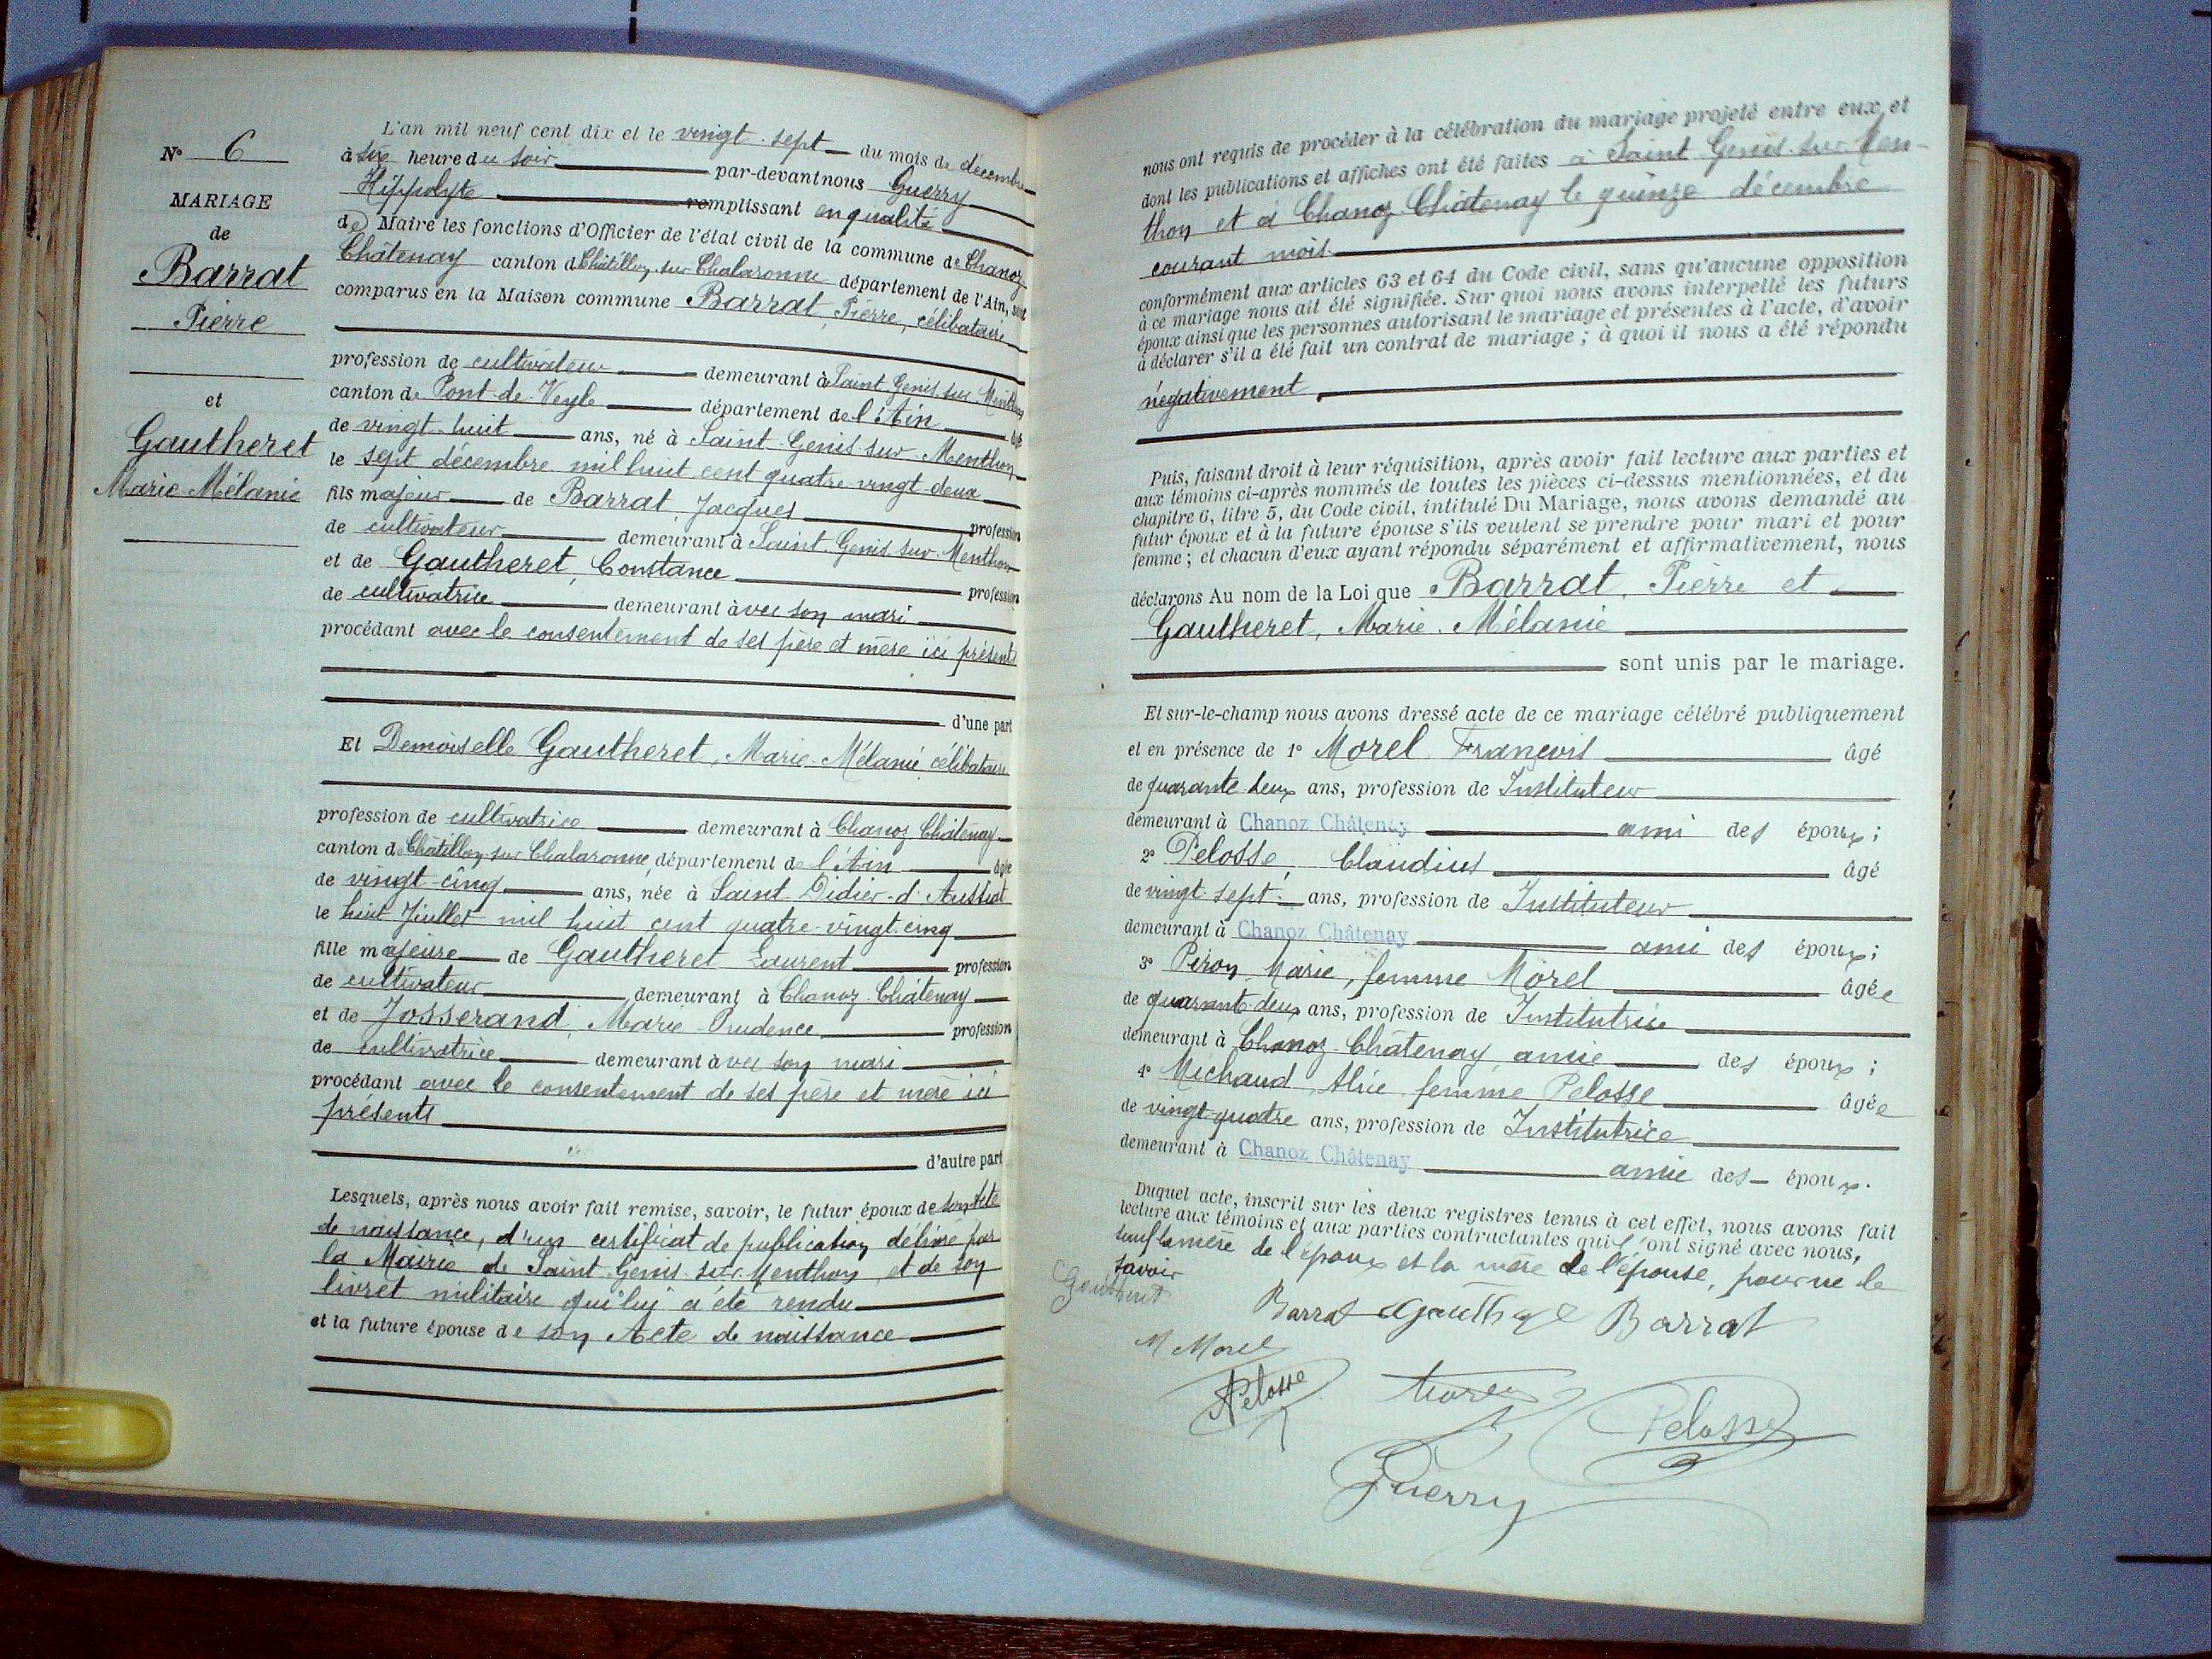 N° 6
MARIAGE
de
Barrat
Pierre
et
Gautheret
Marie-Mélanie
L'an mil neuf cent dix et le vingt-sept du mois de décembre
à six heure du soir par-devant nous Guerry
Hippolyte remplissant en qualité
de Maire les fonctions d'Officier de l'état civil de la commune de Chanoz
Châtenay canton de Châtillon-sur-Chalaronne département de l'Ain, sont
comparus en la Maison commune Barrat, Pierre, célibataire
profession de cultivateur demeurant à Saint Genis sur Menthon
canton de Pont-de-Veyle département de l'Ain âgé
de vingt-huit ans, né à Saint-Genis-sur-Menthon
le sept décembre mil huit cent quatre-vingt-deux
fils majeur de Barrat, Jacques profession
de cultivateur demeurant à Saint-Genis sur-Menthon
et de Gautheret, Constance profession
de cultivatrice demeurant avec son mari
procédant avec le consentement de ses père et mère ici présents
d'une part
Et Demoiselle Gautheret, Marie-Mélanie célibataire
profession de cultivatrice demeurant à Chanoz Châtenay
canton de Châtillon-sur-Chalaronne département de l'Ain âgée
de vingt-cinq ans, née à Saint-Didier-d'Aussiat
le huit Juillet mil huit cent quatre-vingt-cinq
fille majeure de Gautheret Laurent profession
de cultivateur demeurant à Chanoz-Châtenay
et de Josserand, Marie-Prudence profession
de cultivatrice demeurant avec son mari
procédant avec le consentement de ses père et mère ici
présents
d'autre part
Lesquels, après nous avoir fait remise, savoir, le futur époux de son Acte
de naissance, d'un certificat de publication délivré par
la Mairie de Saint-Genis-sur-Menthon et de son
livret militaire qui lui a été rendu
et la future épouse de son Acte de naissance
nous ont requis de procéder à la célébration du mariage projeté entre eux, et
dont les publications et affiches ont été faites à Saint-Genis-sur-Men-
thon et à Chanoz-Châtenay le quinze décembre
courant mois
conformément aux articles 63 et 64 du Code civil, sans qu'aucune opposition
à ce mariage nous ait été signifiée. Sur quoi nous avons interpellé les futurs
époux ainsi que les personnes autorisant le mariage et présentes à l'acte, d'avoir
à déclarer s'il a été fait un contrat de mariage ; à quoi il nous a été répondu
négativement
Puis, faisant droit à leur réquisition, après avoir fait lecture aux parties et
aux témoins ci-après nommés de toutes les pièces ci-dessus mentionnées, et du
chapitre 6, titre 5, du Code civil, intitulé Du Mariage, nous avons demandé au
futur époux et à la future épouse s'ils veulent se prendre pour mari et pour
femme ; et chacun d'eux ayant répondu séparément et affirmativement, nous
déclarons Au nom de la Loi que Barrat, Pierre et
Gautheret, Marie-Mélanie
sont unis par le mariage.
Et sur-le-champ nous avons dressé acte de ce mariage célébré publiquement
et en présence de 1° Morel François âgé
de quarante-deux ans, profession de Instituteur
demeurant à Chanoz Châtenay ami des époux ;
2° Pelosse, Claudius âgé
de vingt-sept ans, profession de Instituteur
demeurant à Chanoz Châtenay ami des époux ;
3° Piron Marie, femme Morel âgée
de quarante-deux ans, profession de Institutrice
demeurant à Chanoz-Châtenay amie des époux ;
4° Michaud Alice femme Pelosse âgée
de vingt-quatre ans, profession de Institutrice
demeurant à Chanoz Châtenay amie des époux.
Duquel acte, inscrit sur les deux registres tenus à cet effet, nous avons fait
lecture aux témoins et aux parties contractantes qui l'ont signé avec nous,
sauf la mère de l'époux et la mère de l'épouse, pour ne le
savoir
Barrat Gautheret Barrat
M Morel
Pelosse Morel Pelosse
Guerry